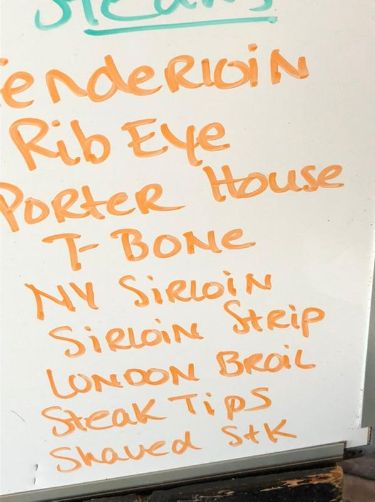 Steaks
Tenderloin
Rib Eye
Porter House
T-Bone
NY Sirloin
Sirloin Strip
London Broil
Steak Tips
Shaved Stk